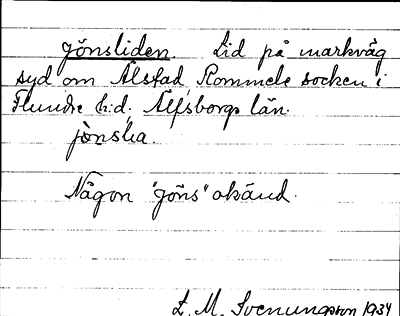 Jönsliden. Lid på markväg
syd om Ålstad, Rommele socken i
Flundre h:d, Älfsborgs län.
jònsləa.
Någon "Jöns" okänd.
L. M. Svenungsson 1934